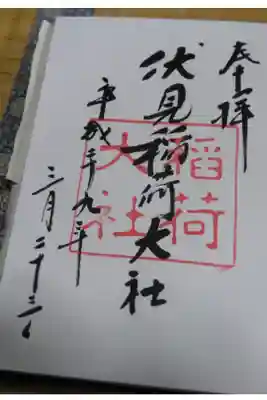 奉拝
伏見稲荷大社
稲荷
大社
平成九年
三月二十三日